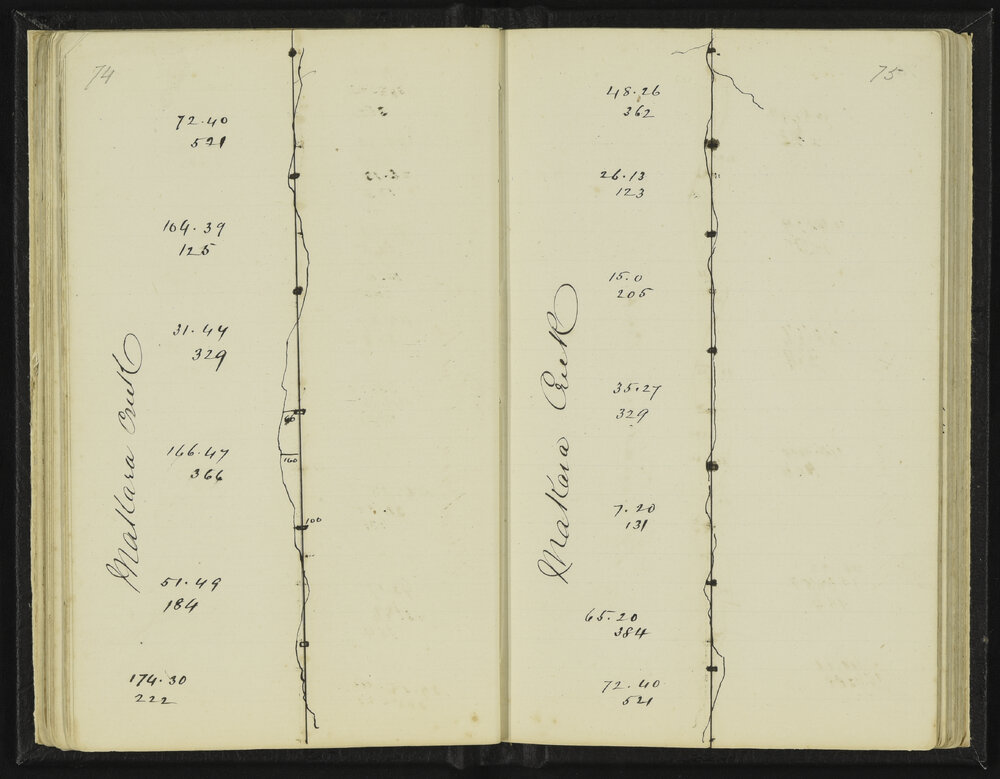 74
72.40
521
104.39
125
31.44
329
Makara Creek
60
166.47
366
160
100
51.49
184
174.30
222
75
48.26
362
26.13
123
15.0
205
Makara Creek
35.27
329
7.20
131
65.20
384
72.40
521